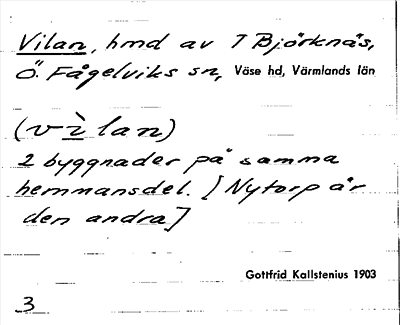 Vilan, hmd av 7 Björknäs,
Ö. Fågelviks sn, Väse hd, Värmlands län
(vìlan)
2 byggnader på samma
hemmansdel. [Nytorp är
den andra]
Gottfrid Kallstenius 1903
3